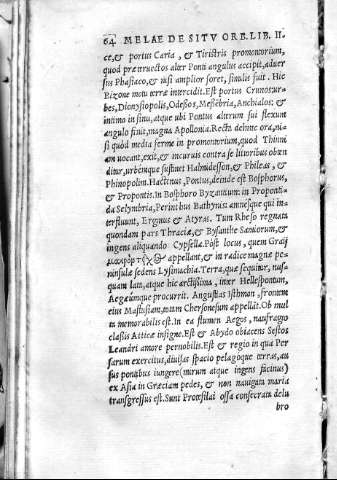 64 MELAE DE SITV ORB. LIB. II.
ce, & portus Caria, & Tiristris promontorium,
quod prætervectos alter Ponti angulus accipit, adver
sus Phasiaco, & nisi amplior foret, similis fuit. Hic
Bizone motu terræ intercidit. Est portus Crunos, ur
bes, Dionysiopolis, Odessos, Messẽbria, Anchialos: &
intimo in sinu, atque ubi Pontus alterum sui flexum
angulo finit, magna Apollonia. Recta dehinc ora, ni
si quòd media ferme in promontorium, quod Thinni
am vocant, exit, & incurvis contra se litoribus obten
ditur, urbesque sustinet Halmidesson, & Phileas, &
Phinopolim. Hactenus, Pontus, deinde est Bosphorus,
& Propontis. In Bosphoro Byzantium: in Proponti
da Selymbria, Perinthus Bathynis: amnesque qui in=
terfluunt, Erginus & Atyras. Tum Rheso regnata
quondam pars Thraciæ, & Bysanthe Samiorum, &
ingens aliquando Cypsella. Pòst locus, quem Graij
appellant, & in radice magnæ pe=
ninsulæ sedens Lysimachia. Terra, quæ sequitur, nus=
quam lata, atque hic arctissima, inter Hellespontum,
Aegæumque procurrit. Angustias Isthmon, frontem
eius Mastusiam, totam Chersonesum appellãt. Ob mul
ta memorabilis est. In ea flumen Aegos, naufragio
classis Atticæ insigne. Est & Abydo obiacens Sestos
Leandri amore pernobilis. Est & regio in qua Per
sarum exercitus, divisas spacio pelagoque terras, au
sus pontibus iungere (mirum atque ingens facinus)
ex Asia in Græciam pedes, & non navigata maria
transgressus est. Sunt Protesilai ossa consecrata delu
bro